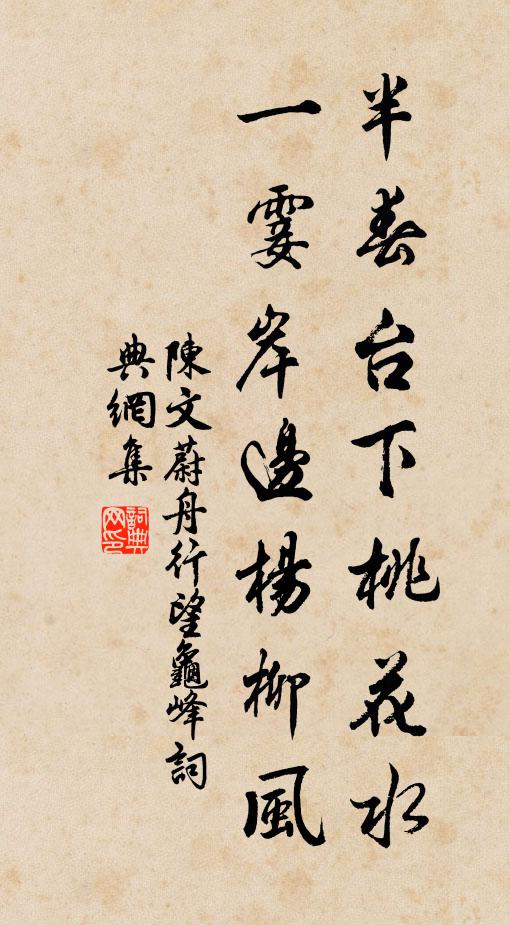 半春台下桃花水
一霎岸邊楊柳風
陳文蔚舟行望龜峰詞
典網集
詞典網印